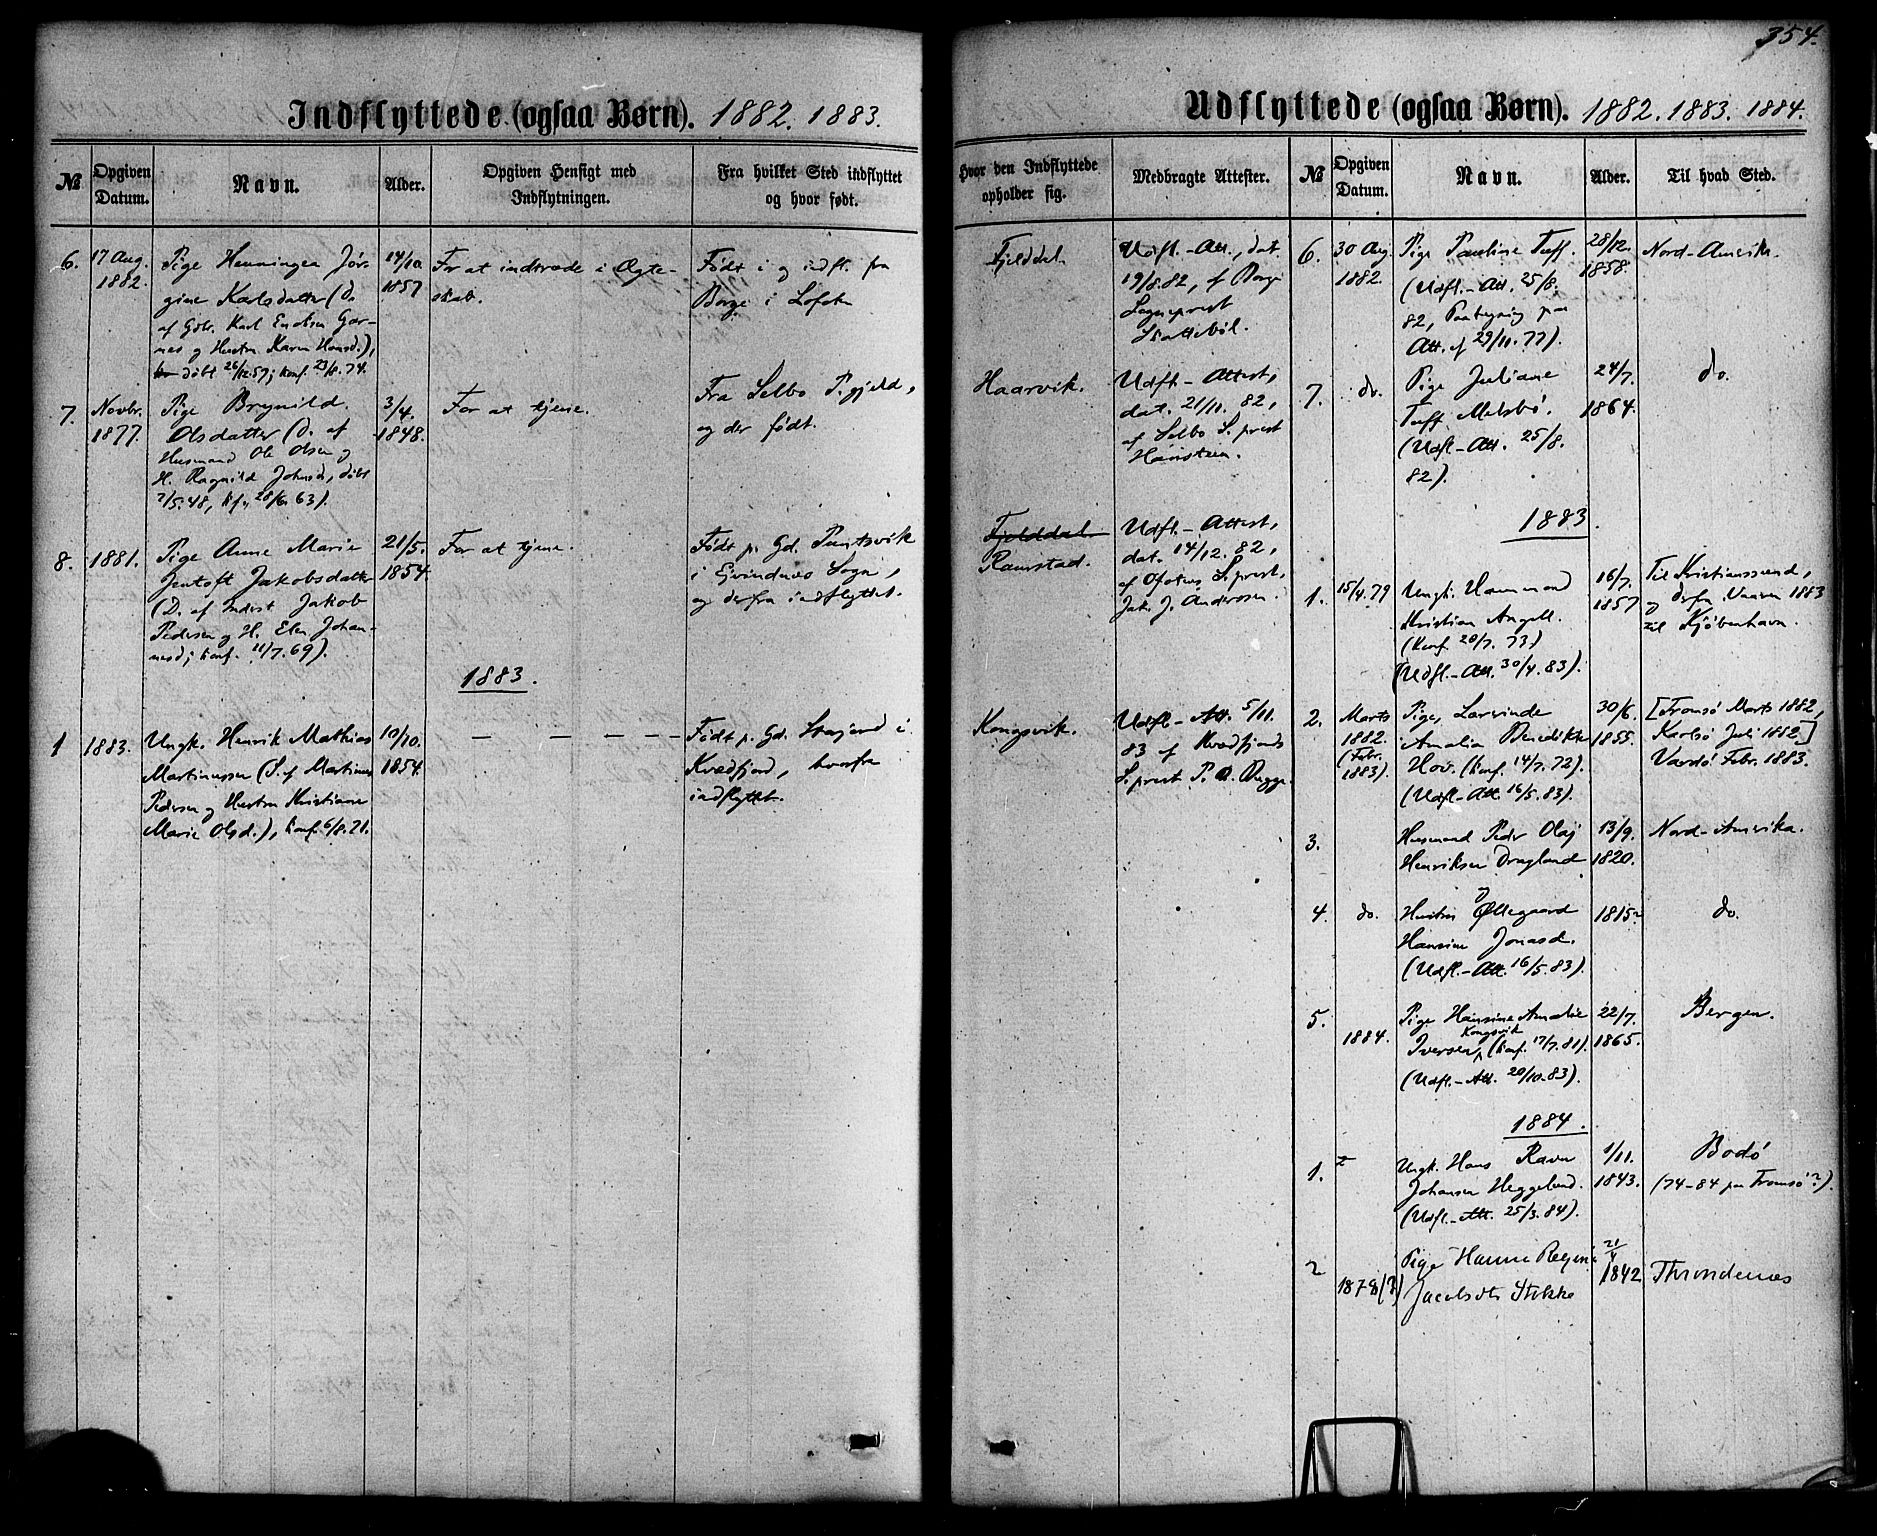 354.
Indflyttede (ogsaa Børn). 1882. 1883.
№
Opgiven Datum.
Navn.
Alder.
Opgiven Hensigt med Indflytningen.
Fra hvilket Sted indflyttet og hvor født.
6.
17 Aug.
1882.
Pige Henningea Jør-
gine Karlsdatter (D.
af Gdbr. Karl
og Hustru Karen Hansd.),
døbt 26/12 57; konf. 23/8. 74.
14/10
1857
For at indtræde i Ægte-
skab.
Født i og indfl. fra
Borge i Lofoten
7.
Novbr.
1877.
Pige Brynild
Olsdatter (D. af
Husmand Ole Olsen og
H. Ragnild Johnsd., døbt
7/5. 48, kf. 28/6. 63).
3/4.
1848.
For at tjene.
Fra Selbo P.gjeld,
og der født.
8.
1881.
Pige Anne Marie
Jentoft Jakobsdatter
(D. af Inderst Jakob
Pedersen og H. Elen Johan-
nesd; konf. 11/7. 69).
21/5.
1854.
For at tjene.
Født p. Gd.
i Evindnes Sogn,
og derfra indflyttet.
1883.
1
1883.
Ungk. Henrik Mathias
Martinussen (S. af Martinus
Pedersen og Hustru Kristiane
Marie Olsd.), konf. 6/8. 71.
10/10.
1854.
— — — — —
Født p. Gd. i
Kvedfjord, hvorfra
indflyttet.
Udflyttede (ogsaa Børn). 1882. 1883. 1884.
Hvor den Indflyttede opholder sig.
Medbragte Attester.
№
Opgiven Datum.
Navn.
Alder.
Til hvad Sted.
Fjelddal.
Udfl.-Att., dat.
19/8. 82, af Borge
Sogneprest
Skattebøl.
Haarvik.
Udfl.-Attest,
dat. 21/11. 82,
af Selbo S.prest
Hanstein.
Fjelddal.
Ramstad.
Udfl.-Attest,
dat. 14/12. 82,
af Ofotens S.prest,
Jak. J. Andersen.
Kongsvik.
Udfl.-Att. 5/11.
83 af Kvedfjords
S.prest P. Bugge.
6.
30 Aug.
1882.
Pige Pauline Tuff.
(Udfl.-Att. 25/8.
82, Paategning paa
Att. af 29/11. 77).
28/12.
1858.
Nord-Amerik.
7.
do.
Pige Juliane
Tuff Melsbø.
(Udfl-Att. 25/8.
82).
24/7.
1864.
do.
1883.
1.
15/4. 79
Ungk. Hammond
Kristian Angell.
(Konf. 20/7. 73)
(Udfl.-Att. 30/4. 83).
16/7.
1857
Til Kristianssund,
og derfra Vaaren 1883
til Kjøbenhavn.
2.
Marts
1882.
(Febr.
1883).
Pige, Larvinde
Amalia Benedikte
Hov. (Konf. 14/7. 72).
(Udfl-Att. 16/5. 83).
30/6.
1855.
[Tromsø Marts 1882,
Karlsø Juli 1882.]
Vardø Febr. 1883.
3.
Husmand Peder Olaj
Henriksen Dragland
13/9.
1820.
Nord-Amerika.
4.
do.
og
Hustru Øllegaard
Hansine Jonasd.
(Udfl.-Att. 16/5. 83).
1815
do.
5.
1884.
Pige Hansine Amalie
Kongsvik
Iversen, (konf. 17/7. 81).
(Udfl.-Att. 20/10. 83).
22/7.
1865.
Bergen.
1884.
1.
Ungk. Hans Ravn
Johansen Heggelund.
(Udfl.-Att. 25/3. 84).
1/11.
1843.
Bodø
(74-84 paa Tromsø?).
2
1878(?)
Pige Hanna Regine
Jacobsdtr Stokke
21/4
1842
Throndenæs